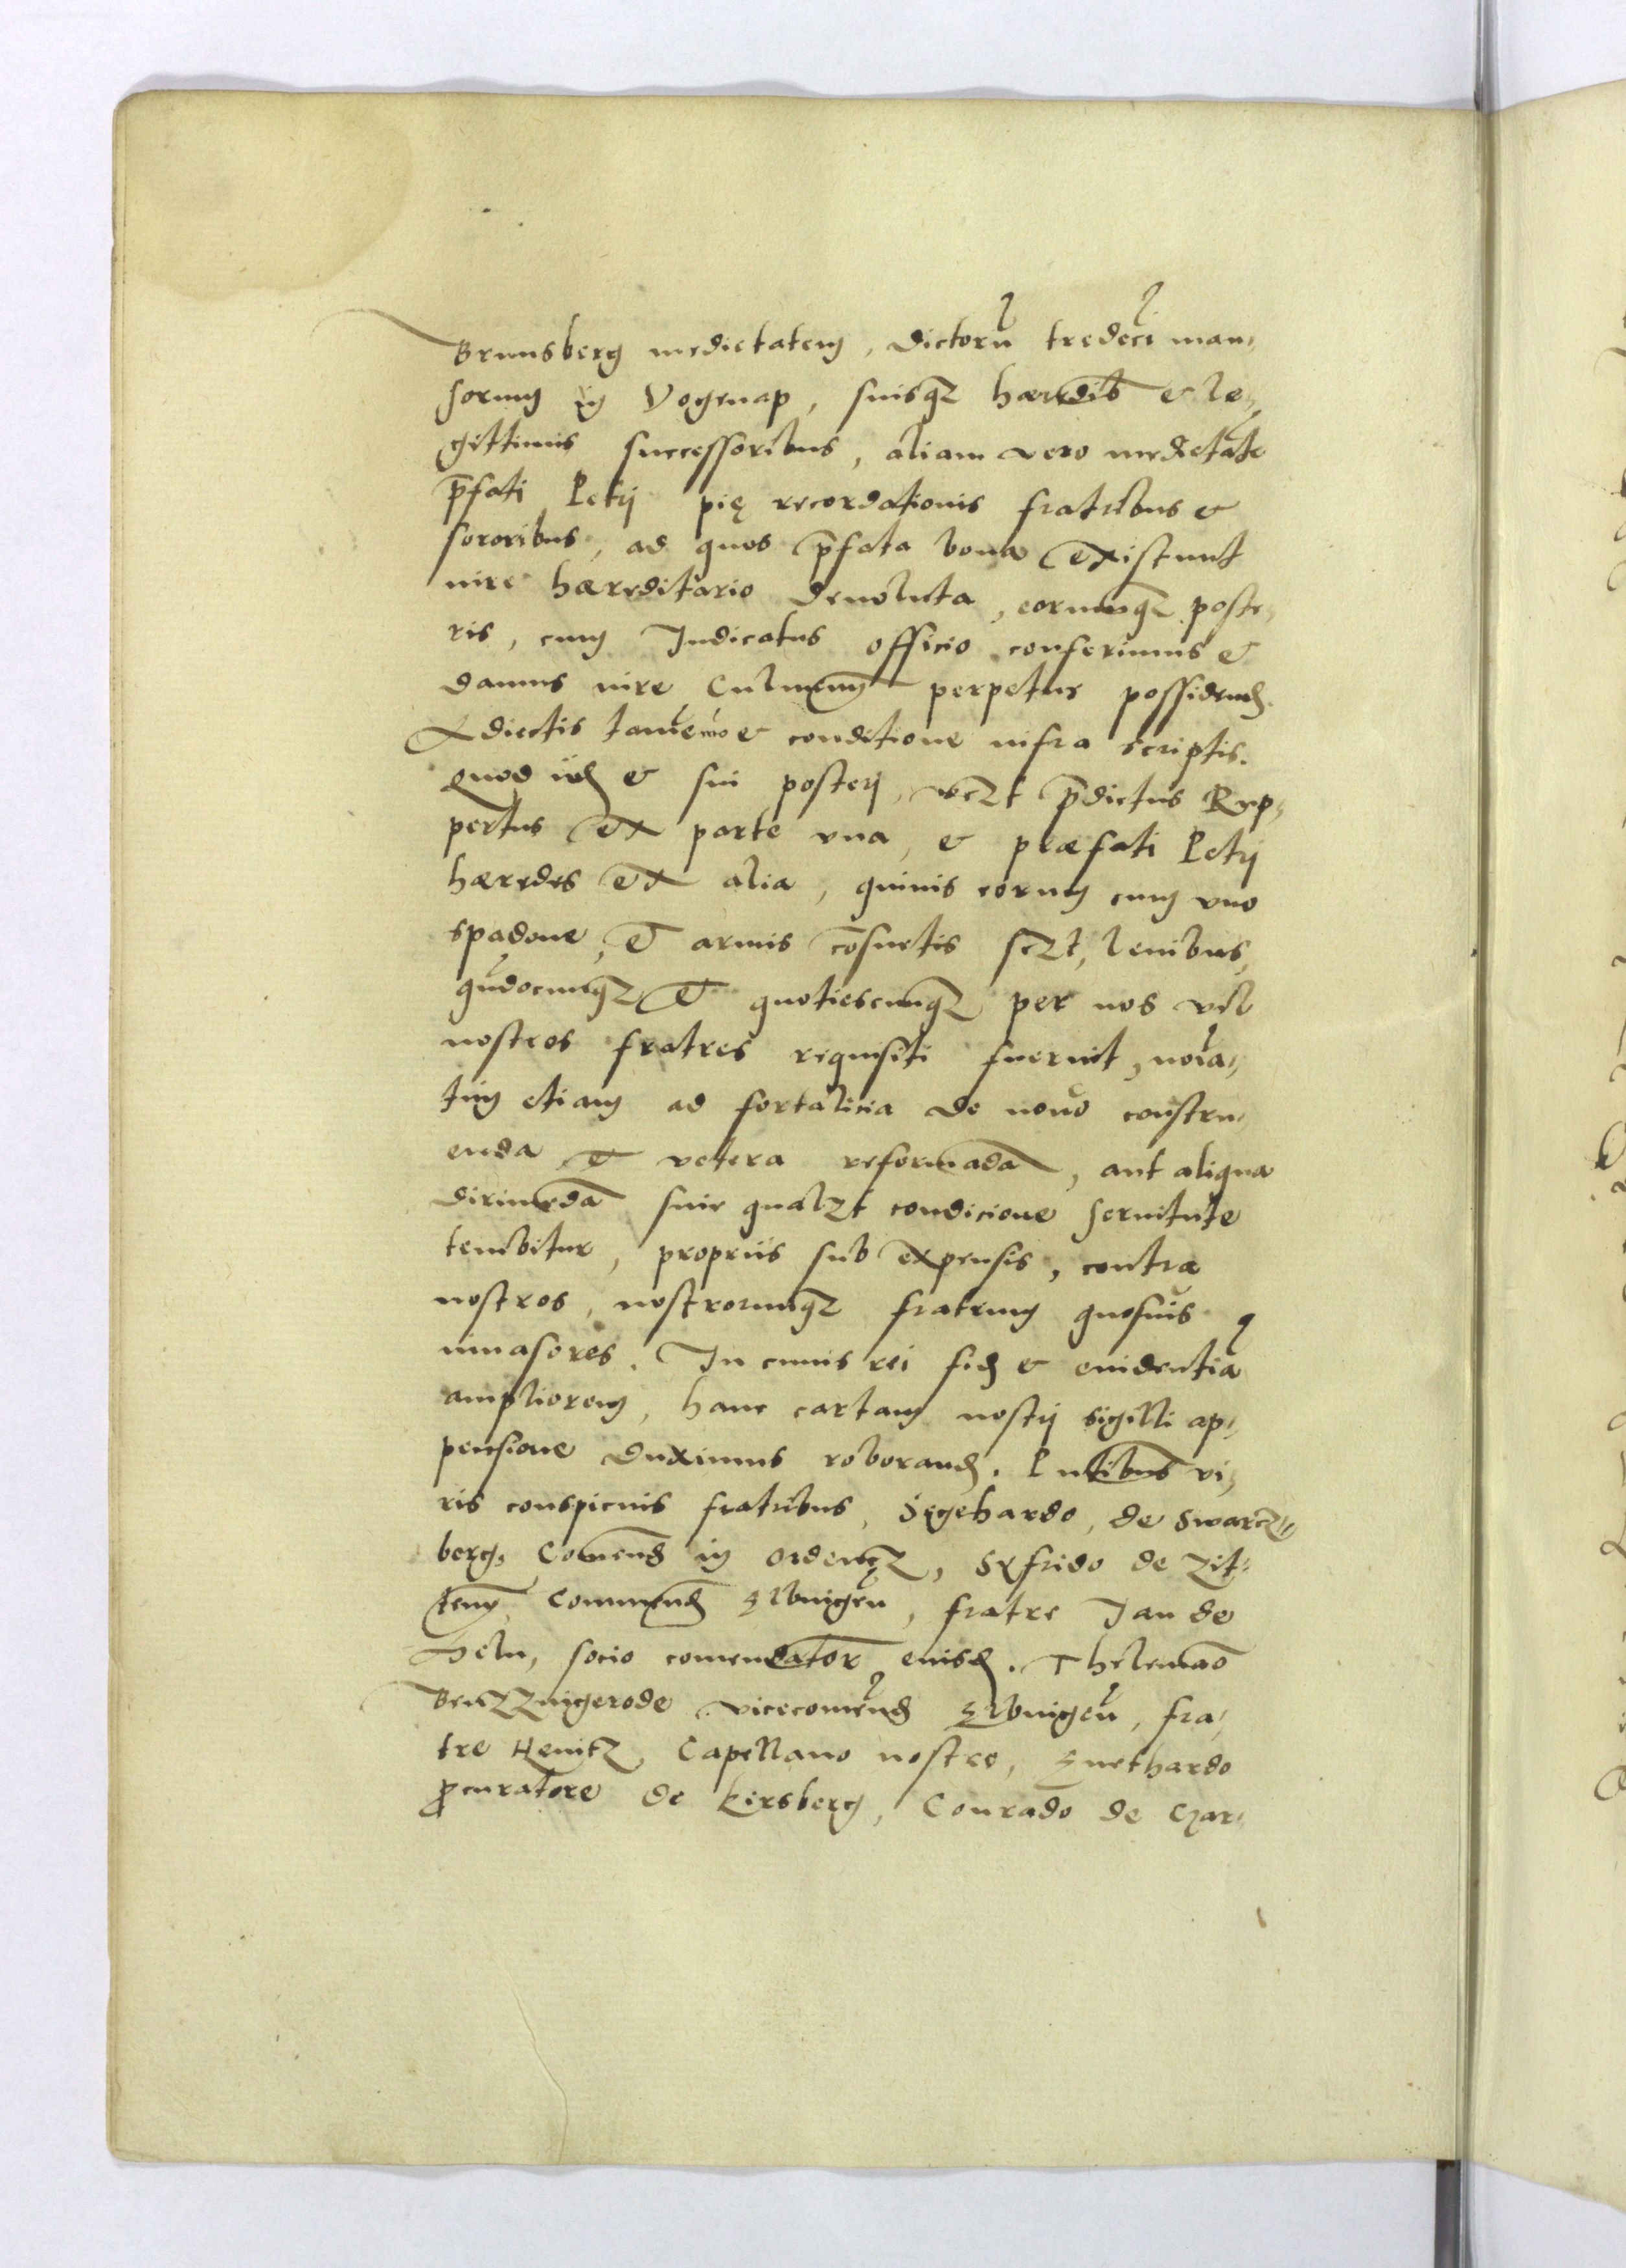 Brunsberg medietatem, dictorũ tredecĩ man,
sorum in Vogenap, suisqз haeredib̃ & le,
gittimis successoribus, aliam vero medietatẽ
p̃fati Petrj pię recordationis fratribus &
sororibus, ad quos p̃fata bona existunt
iure haereditario deuoluta, eorumqз poste,
ris, cum Iudicatus officio conferimus &
damus iure Culmeñ perpetue possidend.
Adiectis & conditione infra scriptis.
Quod iid & sui posterj, vczt p̃dictus Rup,
pertus ex parte vna, & praefati Petrj
haeredes ex alia, quiuis eorum cum vno
spadone, et armis cõsuetis sczt, leuibus,
qũdocunqз et quotiescunqз per nos vel
nostros fratres requisiti fuerint, noĩa,
tim etiam ad fortalicia de nouo constru,
enda et vetera reformãda, aut aliqua
dirimẽda siue qualzt condicione seruitute
tenebitur, propriis sub expensis, contra
nostros, nostrorumqз fratrum quosuis
inuasores. In cuius rei fid & euidentiã
ampliorem, hanc cartam nostrj sigilli ap,
pensione duximus roborand. P̃ntibus vi,
ris conspicuis fratribus, Segehardo, de Swarcz,
berg, Comend in , Syfrido de Zit,
teñ Commend Elbingeñ, fratre Jan de
Heln, socio comendator eiusd. Thelemão
vicecomend Elbingeñ, fra,
tre Heintz, Capellano nostro,
p̃curatore de Kirsberg, Conrado de Czar,